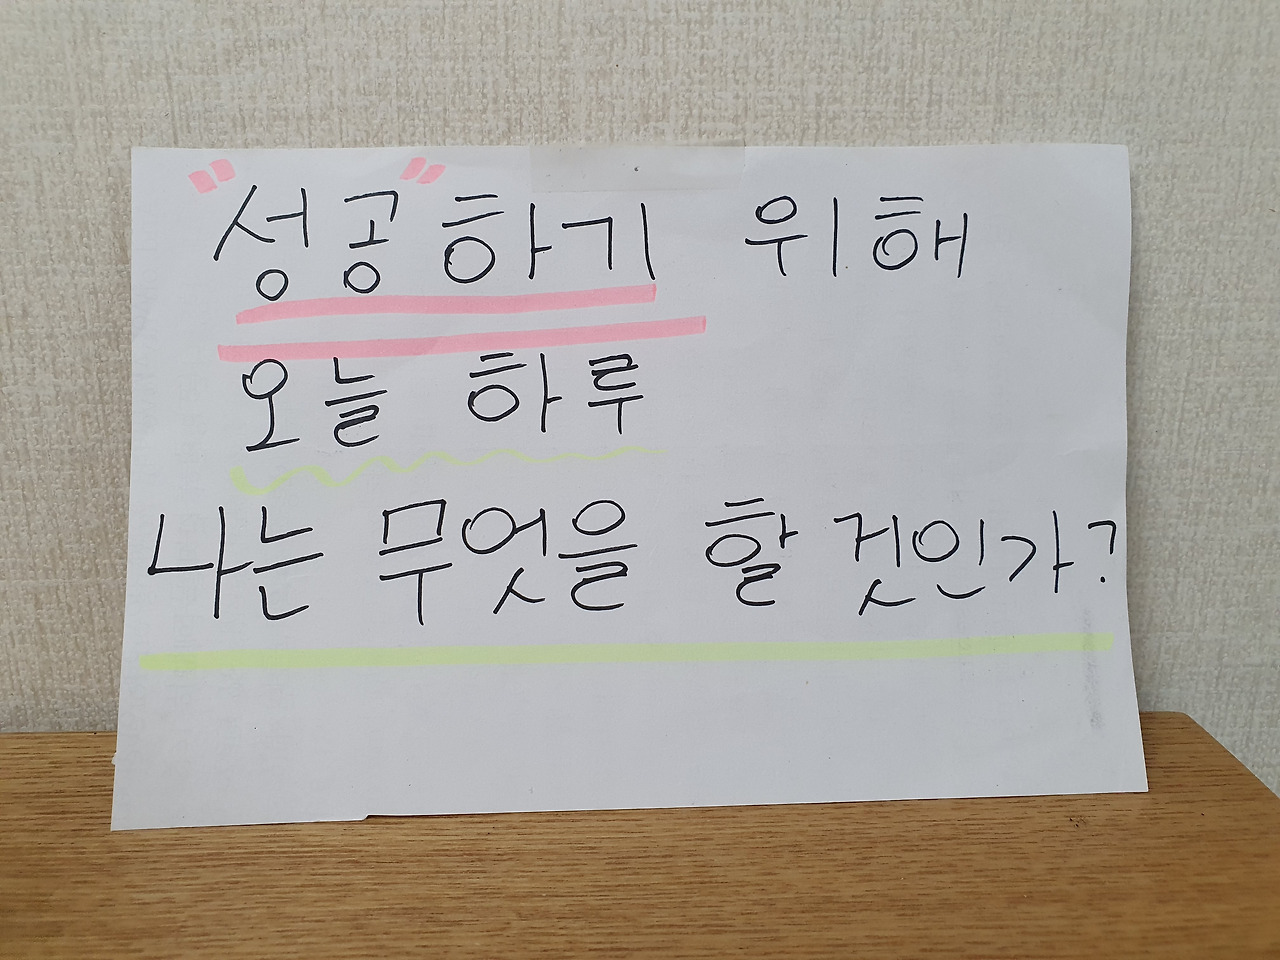 "성공"하기 위해
오늘 하루
나는 무엇을 할 것인가?